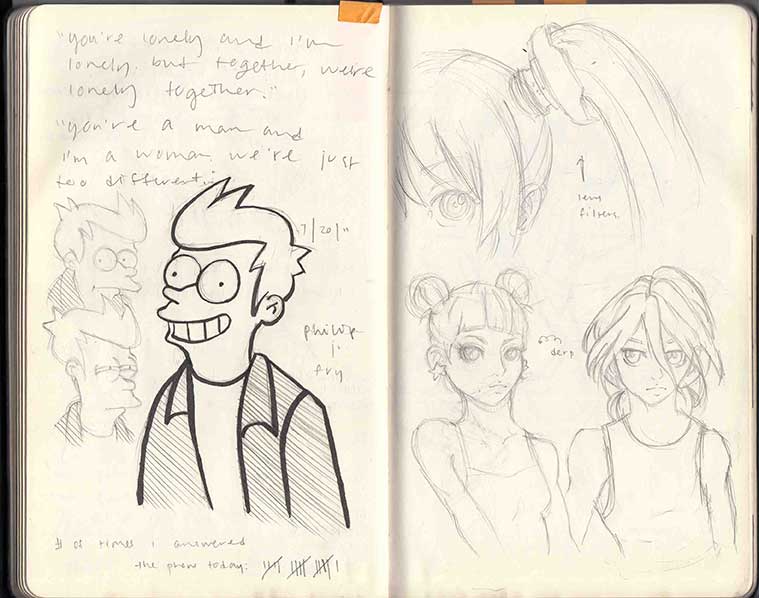 "you're lonely and I'm
lonely. but together, we're
lonely together."
"you're a man and
I'm a woman. we're just
too different."
7/20/11
philip
j.
fry
# of times i answered
the phone today:
lens
filters
derp